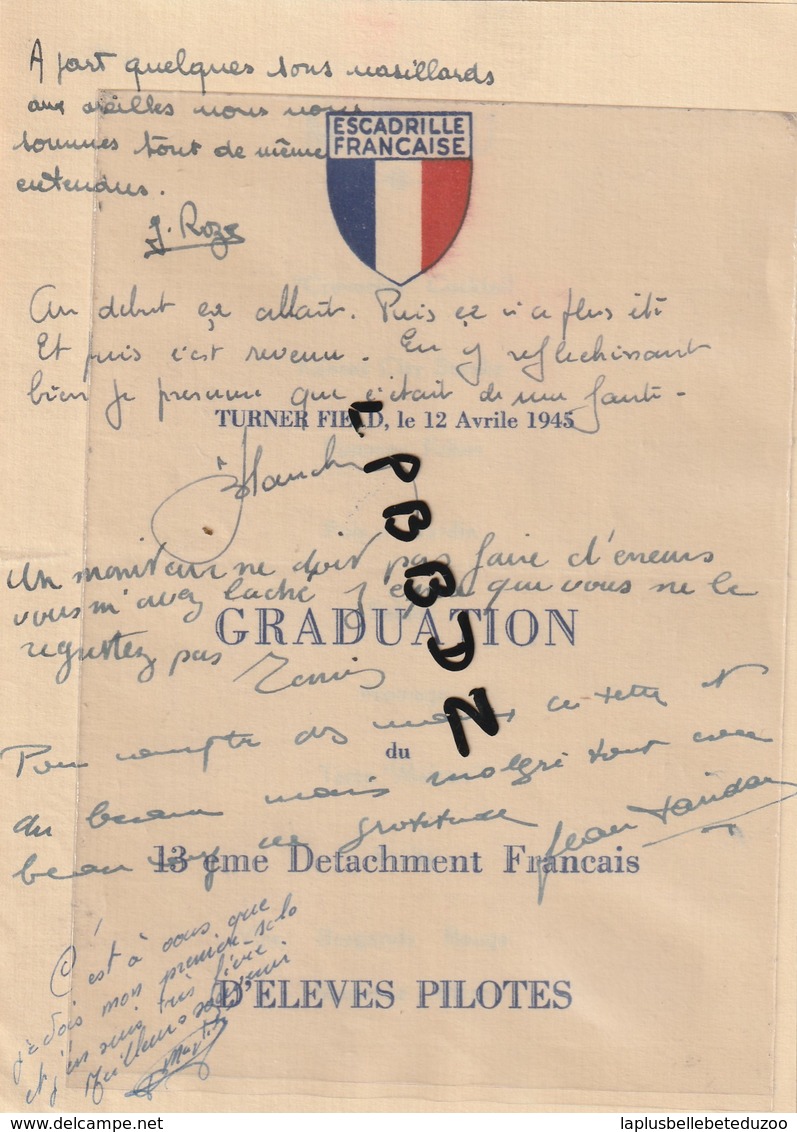 A part quelques sons nasillards
aux oreilles nous nous
sommes tout de même
entendus.
J. Roze
ESCADRILLE
FRANCAISE
Au début ça allait. Puis ça n'a plus été
Et puis c'est revenu. En y reflechissant
bien je presume que c'était de ma faute -
TURNER FIELD, le 12 Avrile 1945
Blanch
LPBBDZ
Un moniteur ne doit pas faire d'erreurs
vous m'avez laché j'espère que vous ne le
regrettez pas
GRADUATION
Pour compte des
du
du bureau mais malgré tout avec
beaucoup de gratitude
Jean
13 eme Detachment Francais
C'est à vous que
je dois mon premier solo
et j'en suis très fière.
Meilleur souvenir
D'ELEVES PILOTES
delcampe.net
laplusbellebeteduzoo